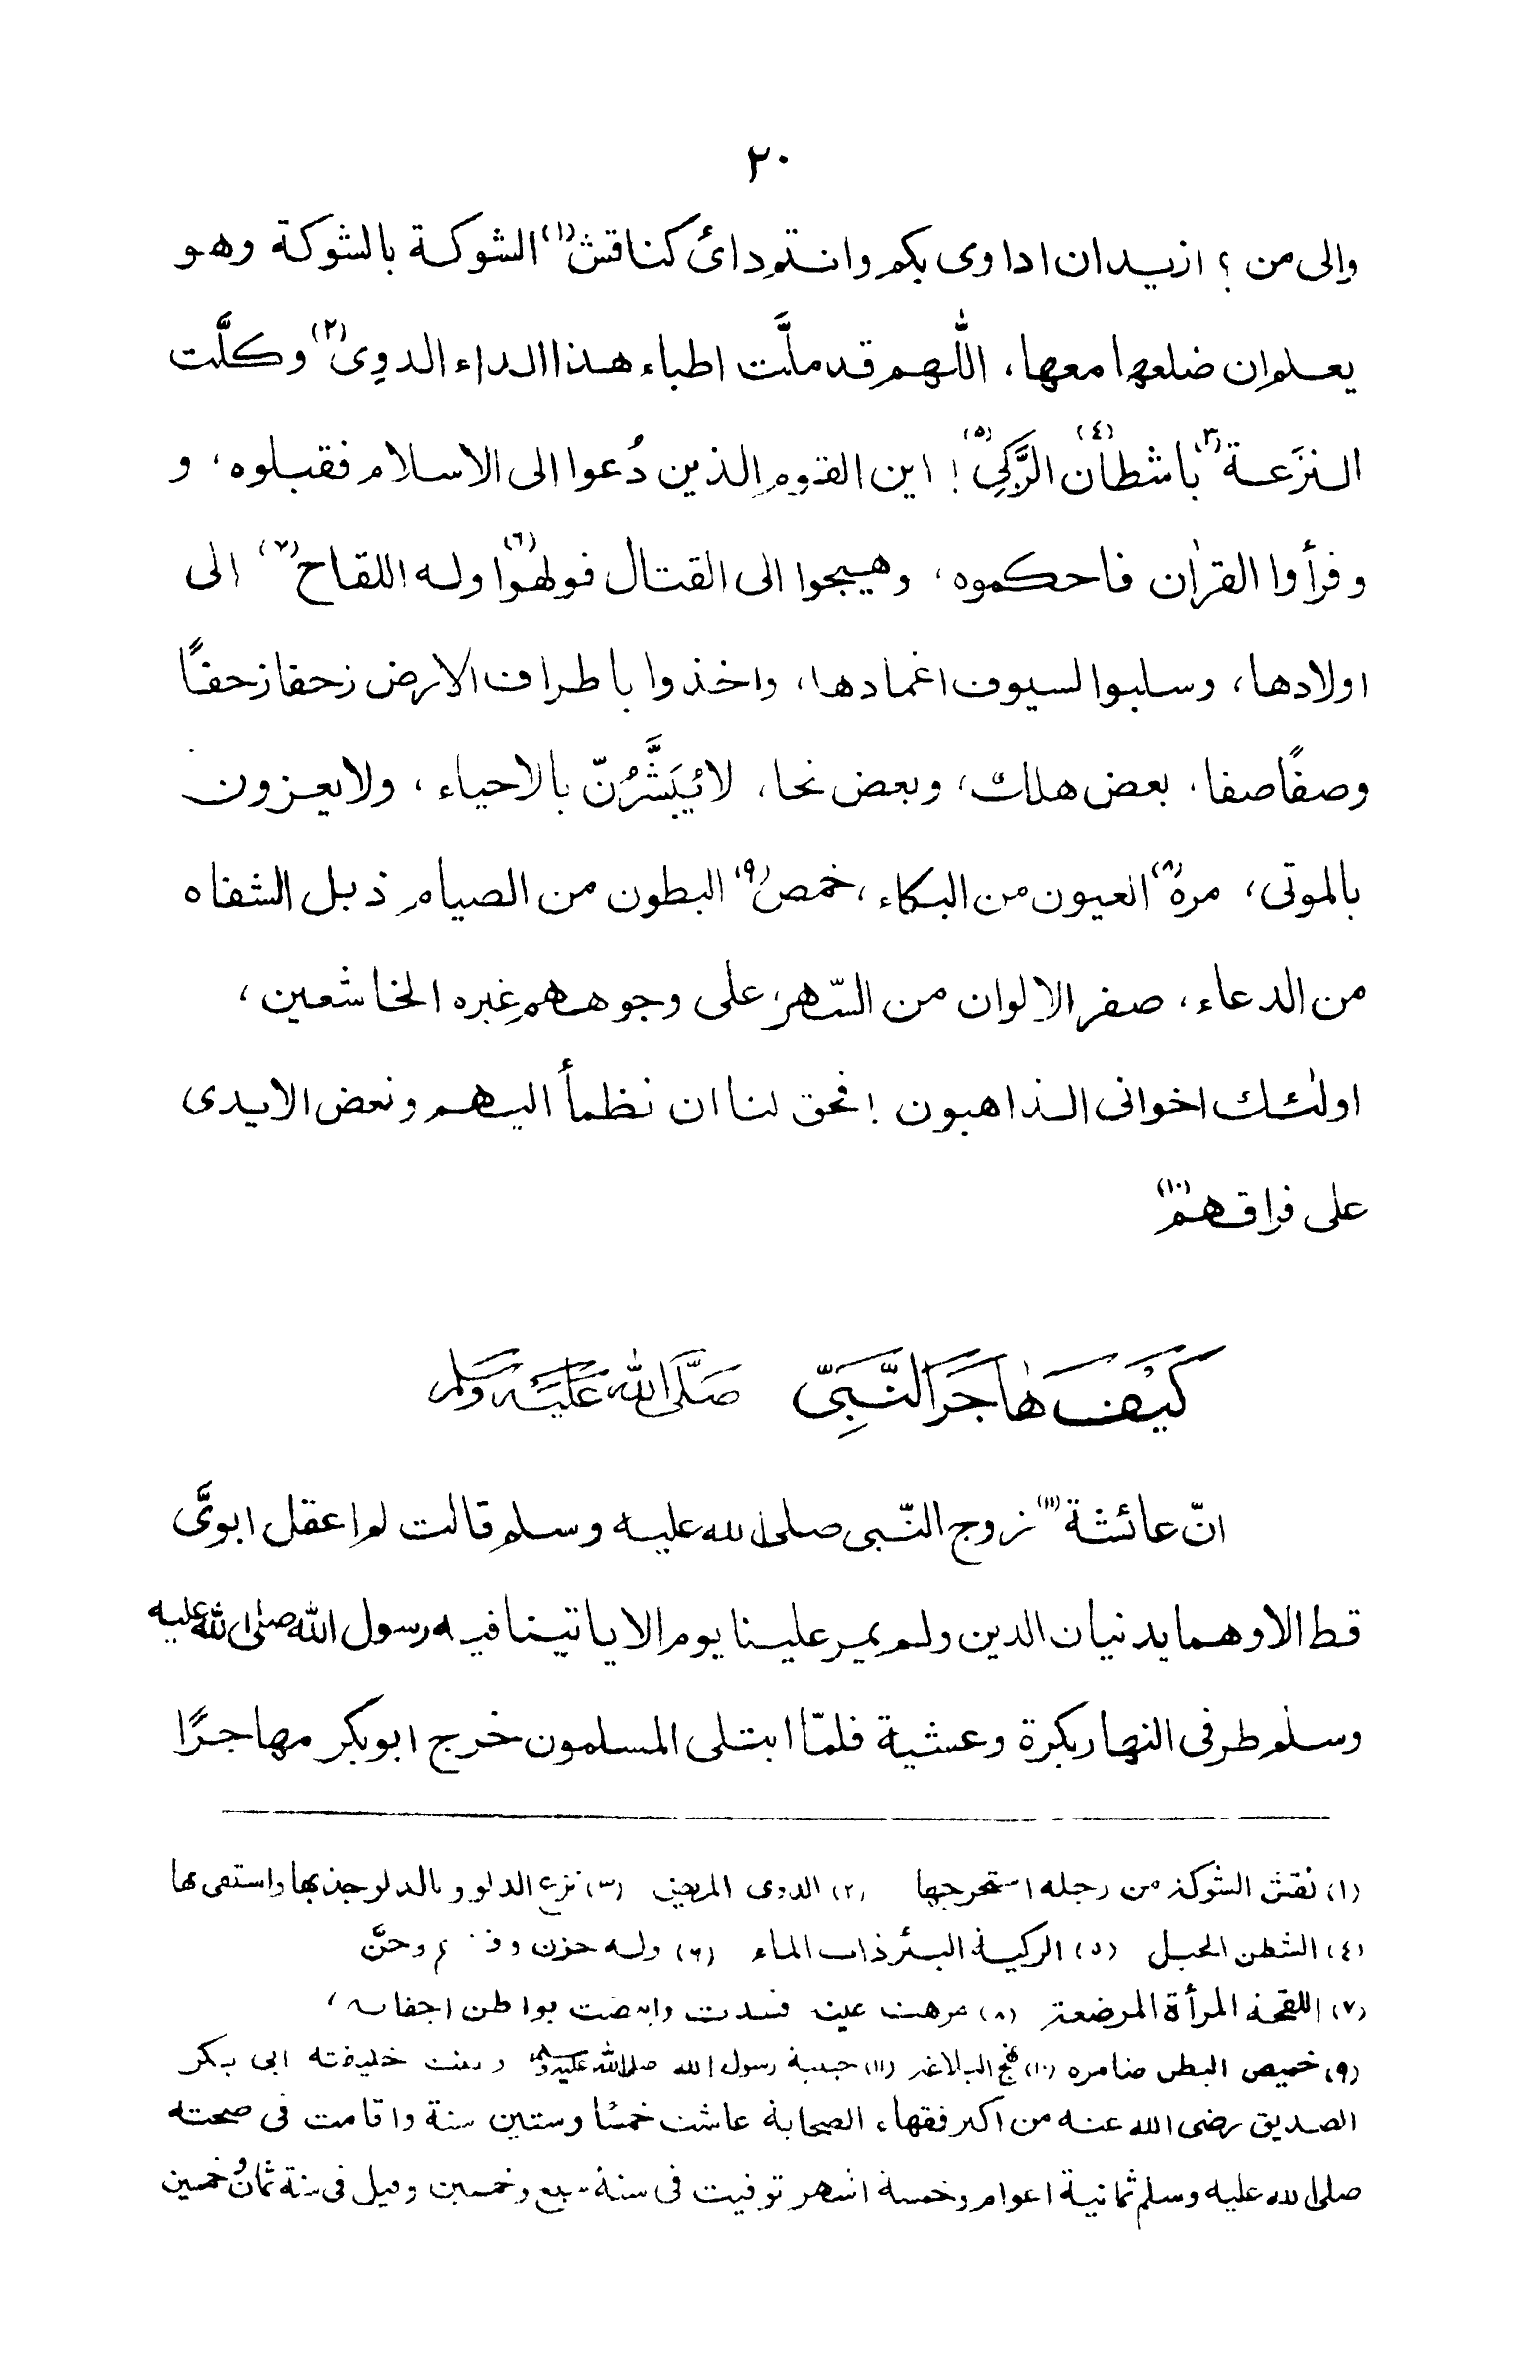 ٢٠
والى من ؟ ازيد ان اداوى بكم وانتم دائ كناقش (١) الشوكة بالشوكة وهو
يعلم ان ضلعها معها، اللّٰهم قد ملَّت اطباء هذا الداء الدوِى (٢) وكلَّت
النزَعة (٣) باشطان (٤) الرَّكِىِ (٥) ! اين القوم الذين دُعوا الى الاسلام فقبلوه، و
وقرأوا القرٰان فاحكموه، وهيجوا الى القتال فولهوا (٦) وله اللقاح (٧) الى
اولادها، وسلبوا لسيوف اغمادها، واخذوا باطراف الارض زحفا زحفًا
وصفًا صفا، بعض هلك، وبعض نحا، لا يُبَشَّرُنّ بالاحياء، ولا يعزون
بالموتى، مره (٨) العيون من البكاء، خمص (٩) البطون من الصيام ذبل الشفاه
من الدعاء، صفر الالوان من السّهر، على وجوههم غبره الخاشعين،
اولٰئك اخوانى الذاهبون ! فحق لنا ان نظمأ اليهم ونعض الايدى
على فراقهم (١٠)
كَيْفَ هَاجَرَ النَّبِىّ صَلَّى اللّٰه عَلَيْه وَسَلم
انّ عائشة (١١) زوج النّبى صلى الله عليه وسلم قالت لم اعقل ابوىَّ
قط الا وهما يدنيان الدين ولم يمر علينا يوم الا ياتينا فيه رسول اللّٰه صلى اللّٰه عليه
وسلم طرفى النهار بكرة وعشية فلمّا ابتلى المسلمون خرج ابوبكر مهاجرًا
(١) نقش الشوكة من رجله استخرجها (٢) الدوى المريض (٣) نزع الدلو و بالدلو جذبها واستقى بها
(٤) الشطن الحبل (٥) الركية البئر ذات الماء (٦) وله حزن و وحنَّ
(٧) اللقحة المرأة المرضعة (٨) مرهت عينه فسدت وابيضت بواطن اجفانه،
(٩) خميص البطن ضامره (١٠) نهج البلاغة (١١) حبيبة رسول الله صلى اللّٰه عليه وسلم وبنت خليفته ابى بكر
الصديق رضى الله عنه من اكبر فقهاء الصحابة عاشت خمسًا وستين سنة واقامت فى صحبته
صلى الله عليه وسلم ثمانية اعوام وخمسة اشهر توفيت فى سنة سبع وخمسين وقيل فى سنة ثمان وخمسين